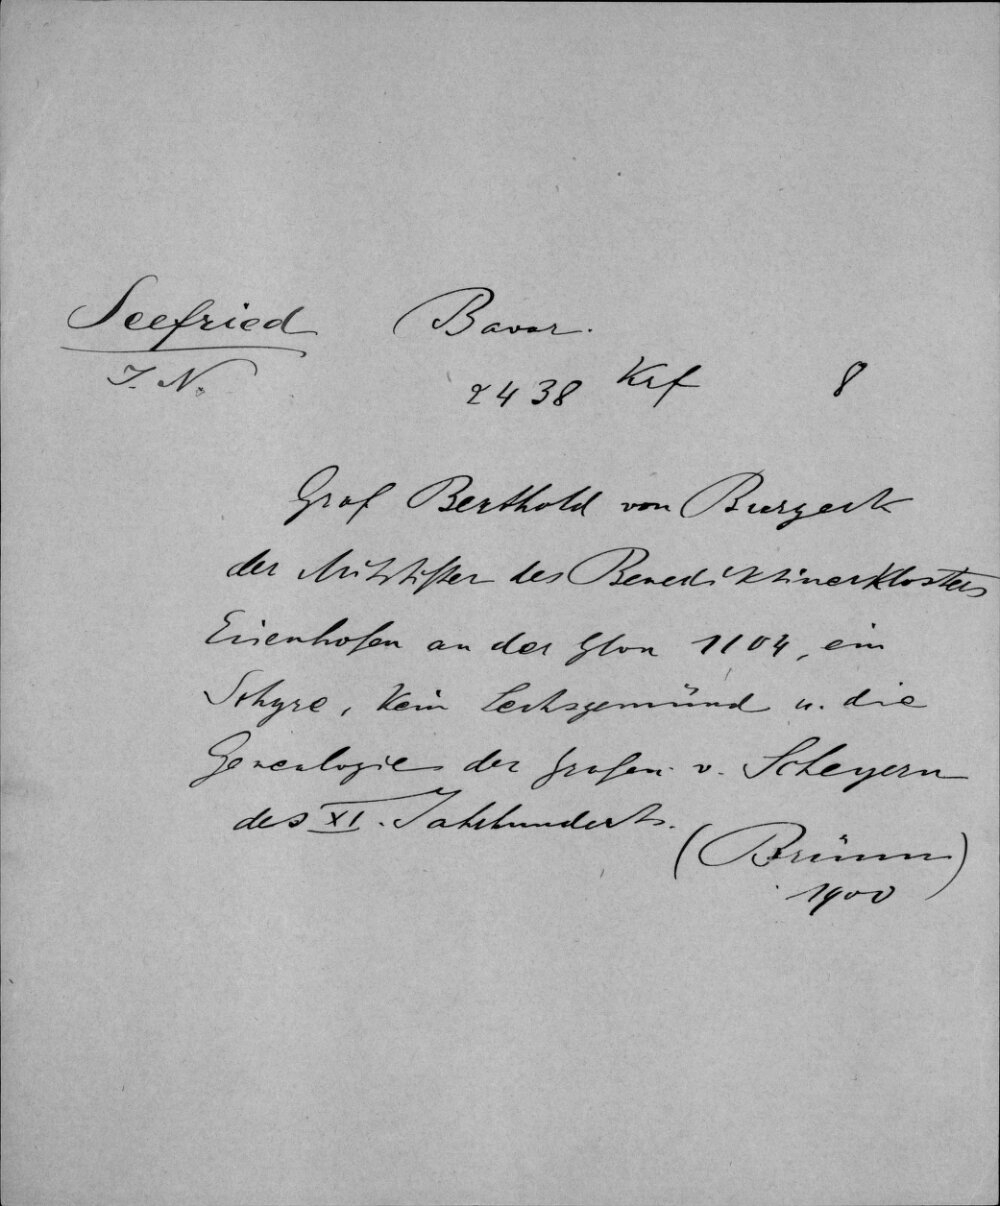 Seefried Bavar.
J. N. 2438 Krf 8
Graf Berthold von Burgeck
der Mitstifter des Benediktinerklosters
Eisenhofen an der Glon 1104, ein
Schyre, kein Lechsgemünd u. die
Genealogie der Grafen v. Scheyern
des XI. Jahrhunderts.
(Brünn)
1900